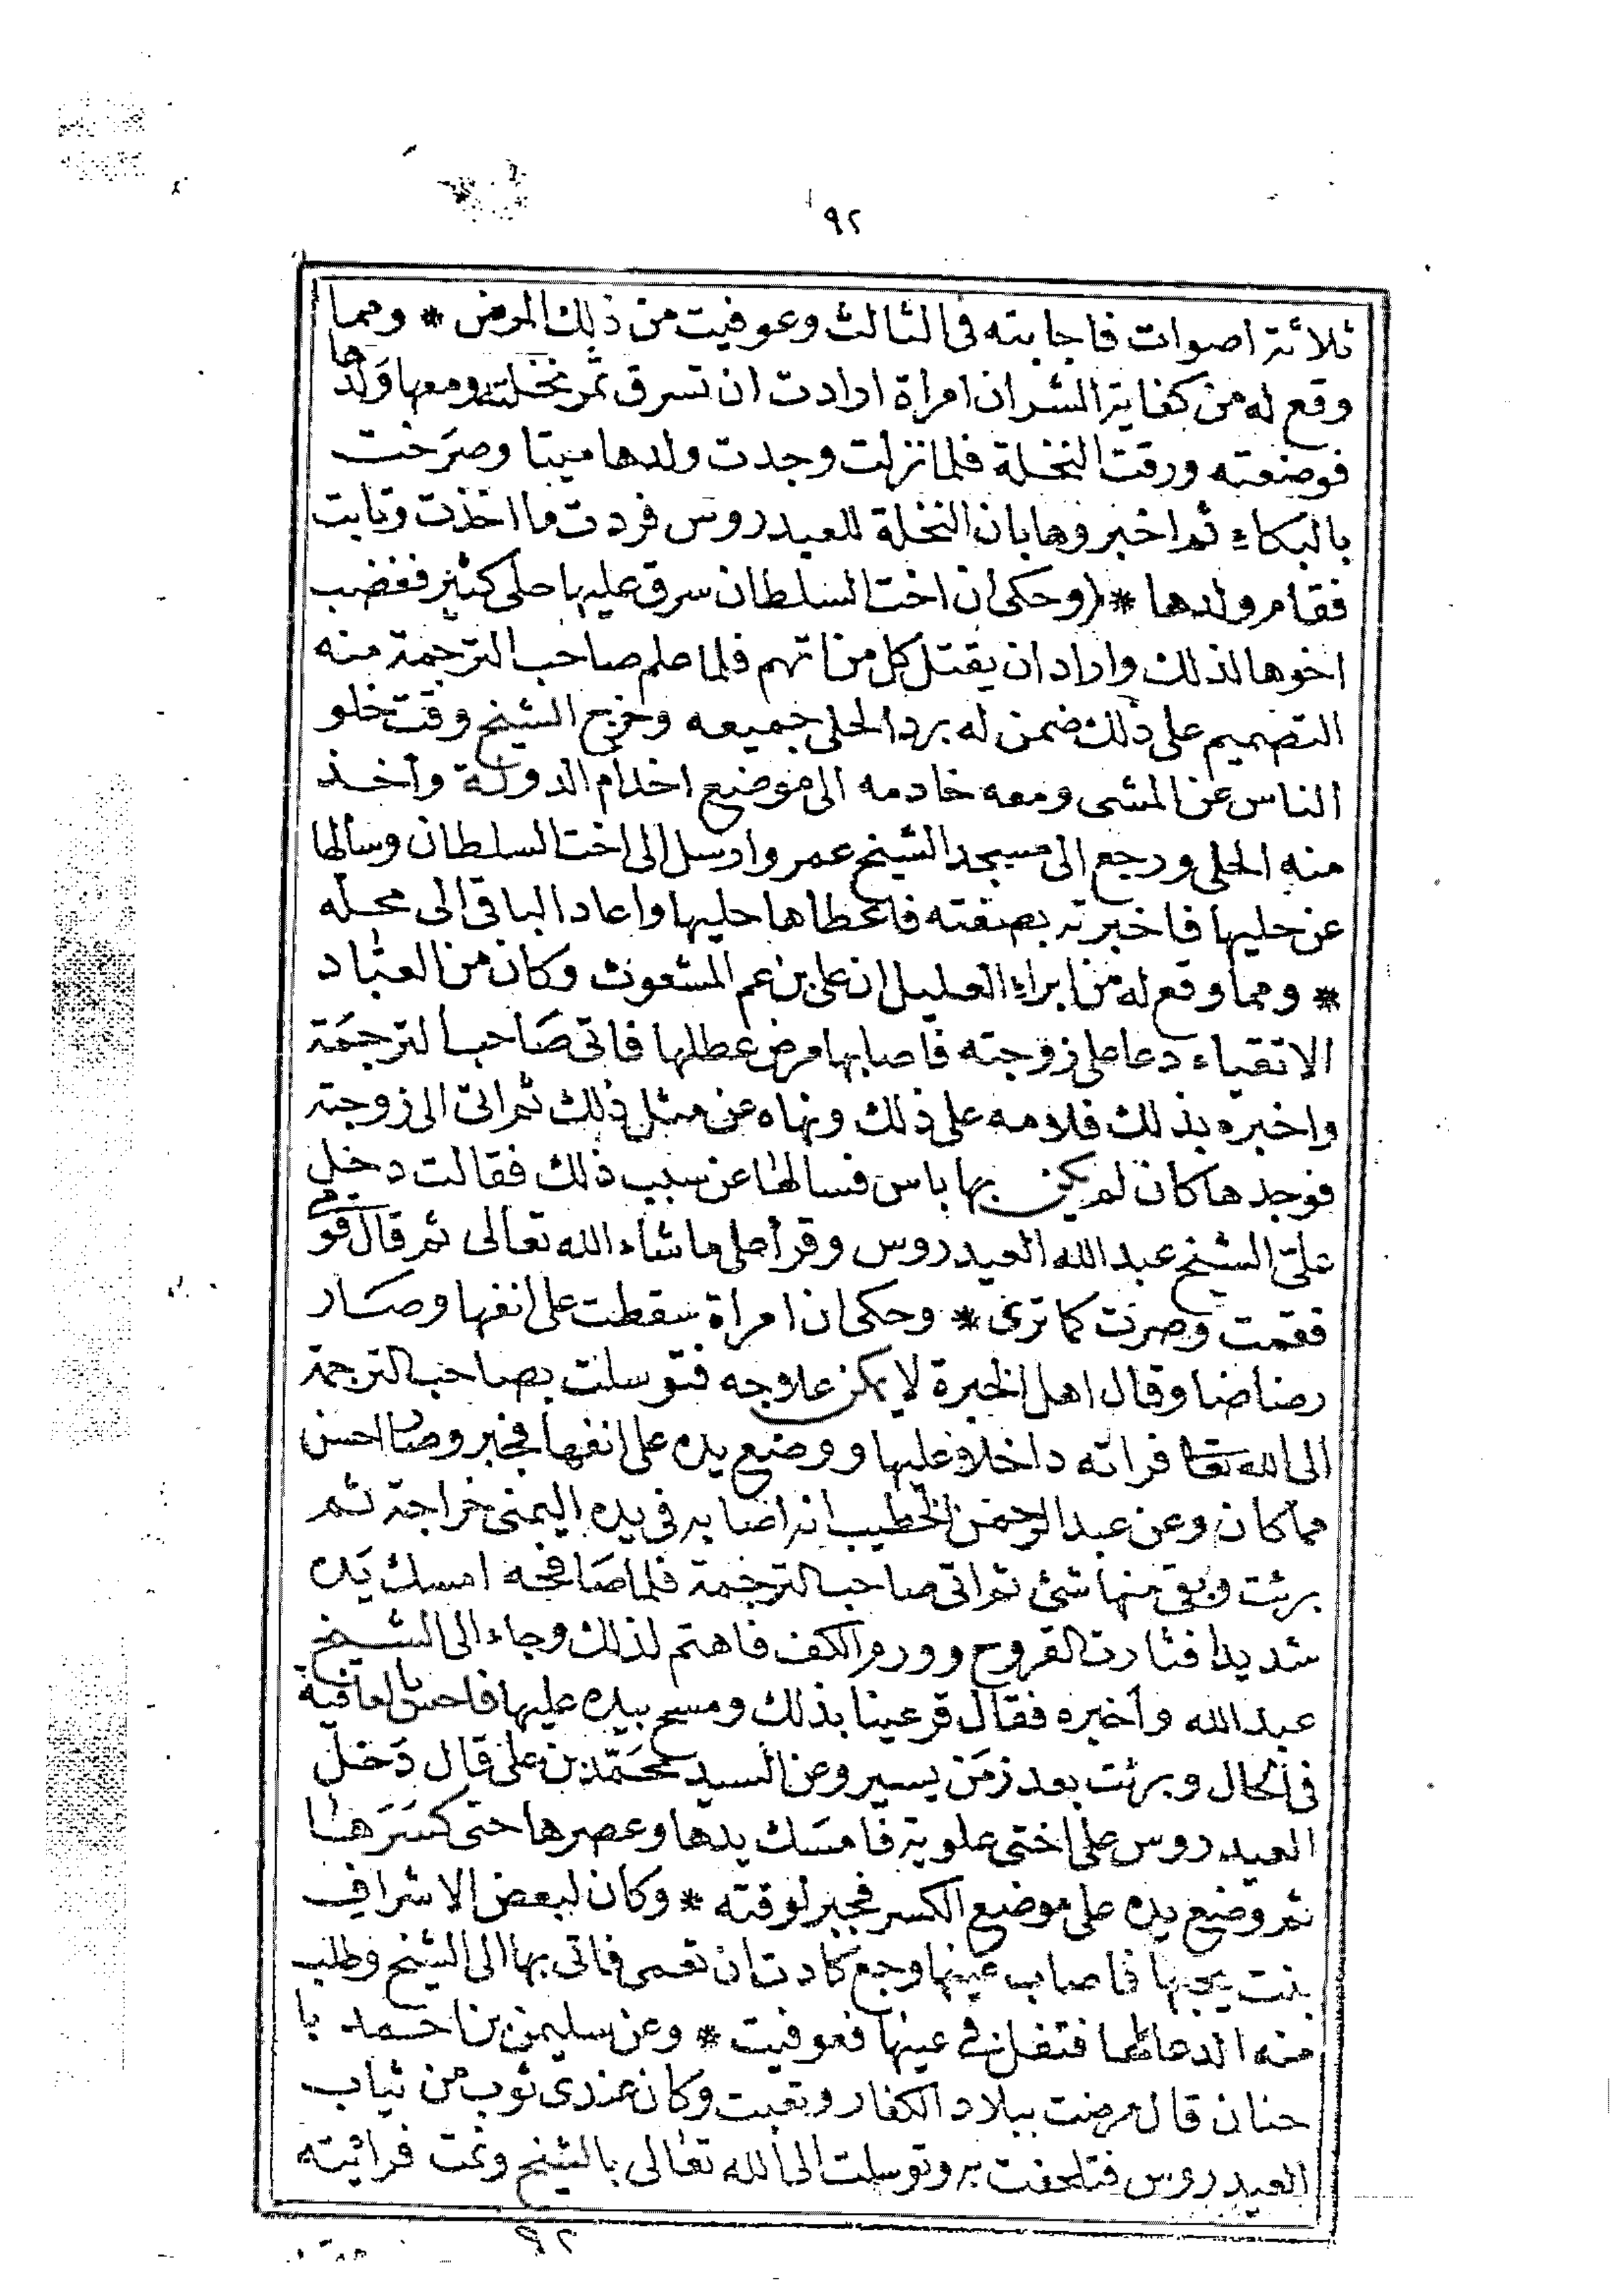 ٩٢
ثلاثة اصوات فاجابته فى الثالث وعوفيت من ذلك المرض * ومما
وقع له من كفاية الشر ان امراة ارادت ان تسرق ثمر نخلته ومعها ولدها
فوضعته ورقت النخلة فلما نزلت وجدت ولدها ميتا وصرخت
بالبكاء ثم اخبروها بان النخلة للعيدروس فردت ما اخذت وتابت
فقام ولدها * (وحكى ان اخت السلطان سرق عليها حلى كثير فغضب
اخوها لذلك واراد ان يقتل كل من اتهم فلما علم صاحب الترجمة منه
التصميم على ذلك ضمن له برد الحلى جميعه وخرج الشيخ وقت خلو
الناس عن المشى ومعه خادمه الى موضع اخدام الدولة واخذ
منه الحلى ورجع الى مسجد الشيخ عمر وارسل الى اخت السلطان وسالها
عن حليها فاخبرته بصفته فاعطاها حليها واعاد الباقى الى محله
* ومما وقع له من ابراء العليل ان على بن عم المشعوث وكان من العباد
الاتقياء دعا على زوجته فاصابها مرض عطلها فاتى صاحب الترجمة
واخبره بذلك فلامه على ذلك ونهاه عن مثل ذلك ثم اتى الى زوجته
فوجدها كان لم يكن بها باس فسالها عن سبب ذلك فقالت دخل
علىّ الشيخ عبد الله العيدروس وقرأ على ما شاء الله تعالى ثم قال قومى
فقمت وصرت كما ترى * وحكى ان امراة سقطت على انفها وصار
رضاضا وقال اهل الخبرة لا يمكن علاجه فتوسلت بصاحب الترجمة
الى الله تعا فراته داخلا عليها ووضع يده على انفها فجبر وصار احسن
مما كان وعن عبد الرحمن الخطيب انه اصابه فى يده اليمنى خراجة ثم
برئت وبقى منها شئ ثم اتى صاحب الترجمة فلما صافحه امسك يده
شديدا فثارت القروح وورم الكف فاهتم لذلك وجاء الى الشيخ
عبد الله واخبره فقال قر عينا بذلك ومسح بيده عليها فاحس بالعافية
فى الحال وبرئت بعد زمن يسير وعن السيد محمّد بن على قال دخل
العيدروس على اختى علوية فامسك يدها وعصرها حتى كسرها
ثم وضع يده على موضع الكسر فجبر لوقته * وكان لبعض الاشراف
بنت يحبها فاصاب عينها وجع كادت ان تعمى فاتى بها الى الشيخ وطلب
منه الدعا لها فتفل فى عينها فعوفيت * وعن سليمن بن احمد با
حنان قال مرضت ببلاد الكفار وتعبت وكان عندى ثوب من ثياب
العيدروس فتلحفت به وتوسلت الى الله تعالى بالشيخ ونمت فرائيته
٩٢